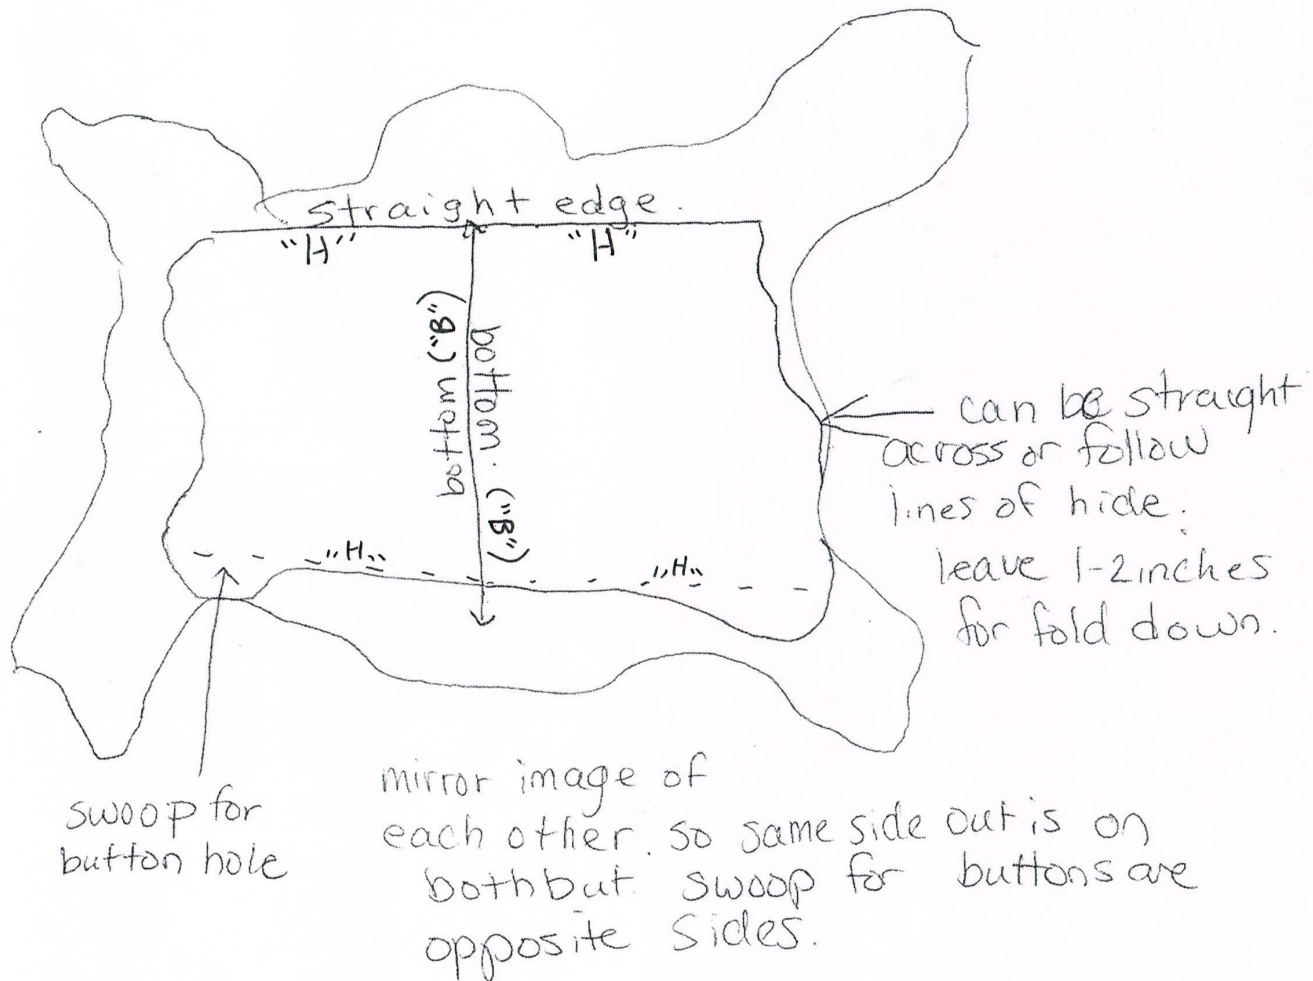 straight edge.
"H" "H"
("B") bottom
bottom. ("B")
"H" "H"
can be straight
across or follow
lines of hide.
leave 1-2 inches
for fold down.
swoop for
button hole
mirror image of
each other. so same side out is on
both but swoop for buttons are
opposite sides.